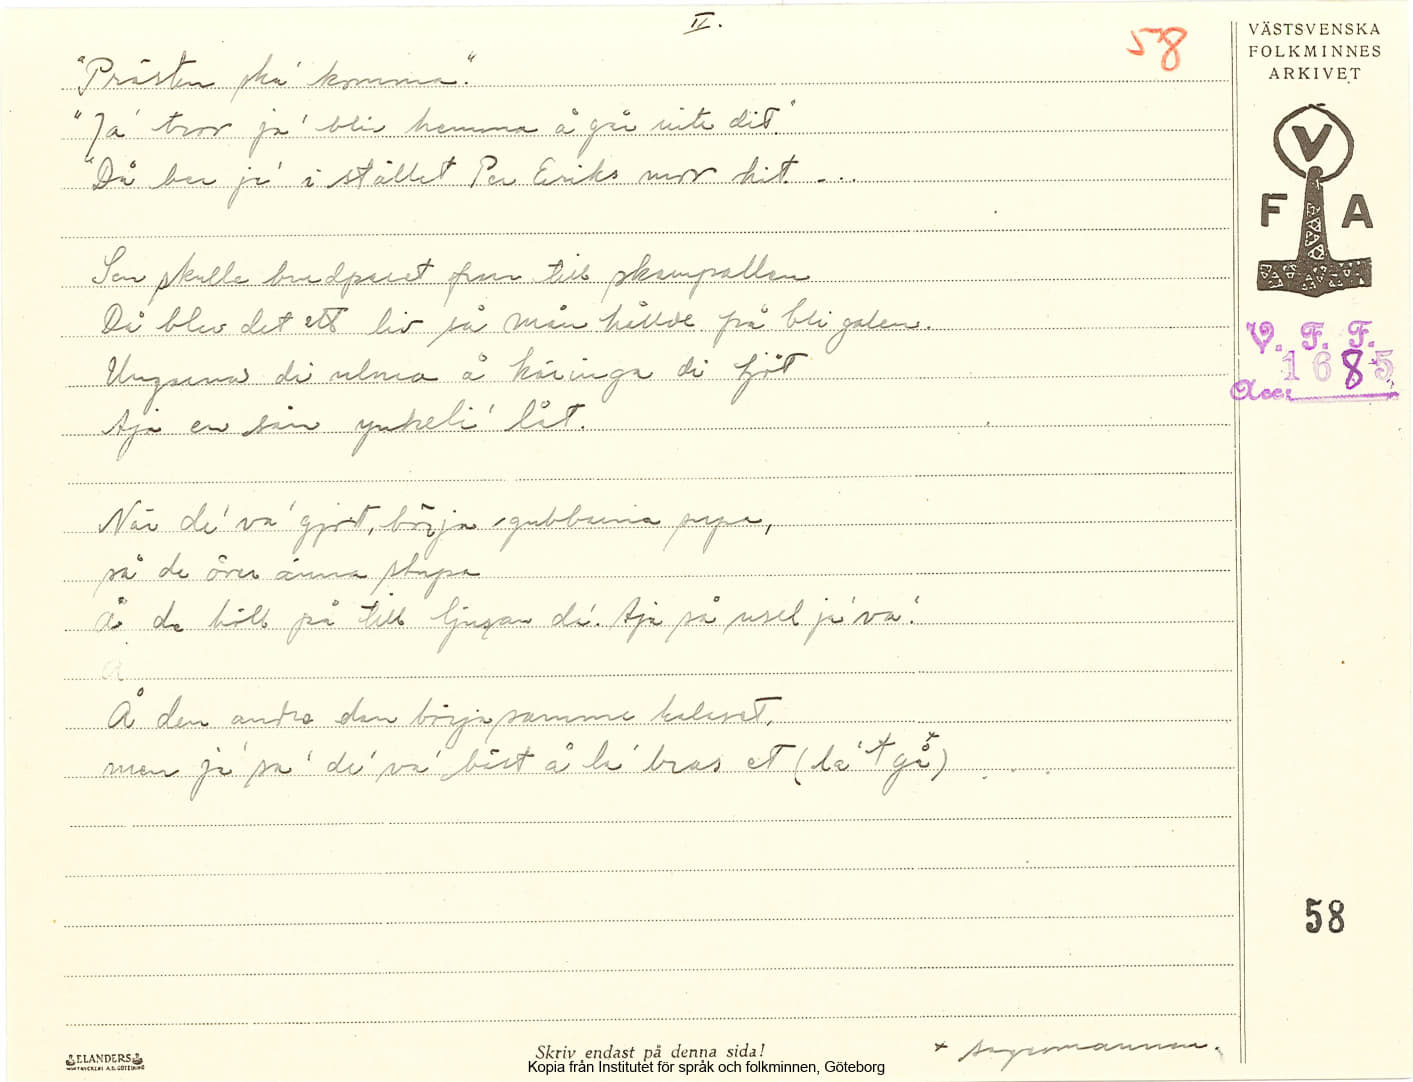 II.
58
"Prästen ska' komma".
"Ja' tror ja' blir hemma å går inte dit."
"Då ber ja' i stället Per Eriks mor hit. ...
Sen skulle brudparet fram till skampallen
Då blev det ett liv så man hållde på bli galen.
Ungarna di ulma å käringa di tjöt
Aja en sån ynkeli' låt.
När de' va' gjort, börja gubbarna supa,
så de över ända stupa
Å de höll på till ljusan da'. Aja så usel ja' va'.
Å den andra dan börja samma kalaset,
men ja' sa' de' va' bäst å la' bras et (la' + gå*)
VÄSTSVENSKA
FOLKMINNES
ARKIVET
V
F A
V. F. F.
1685
Acc:
58
ELANDERS
Skriv endast på denna sida!
Kopia från Institutet för språk och folkminnen, Göteborg